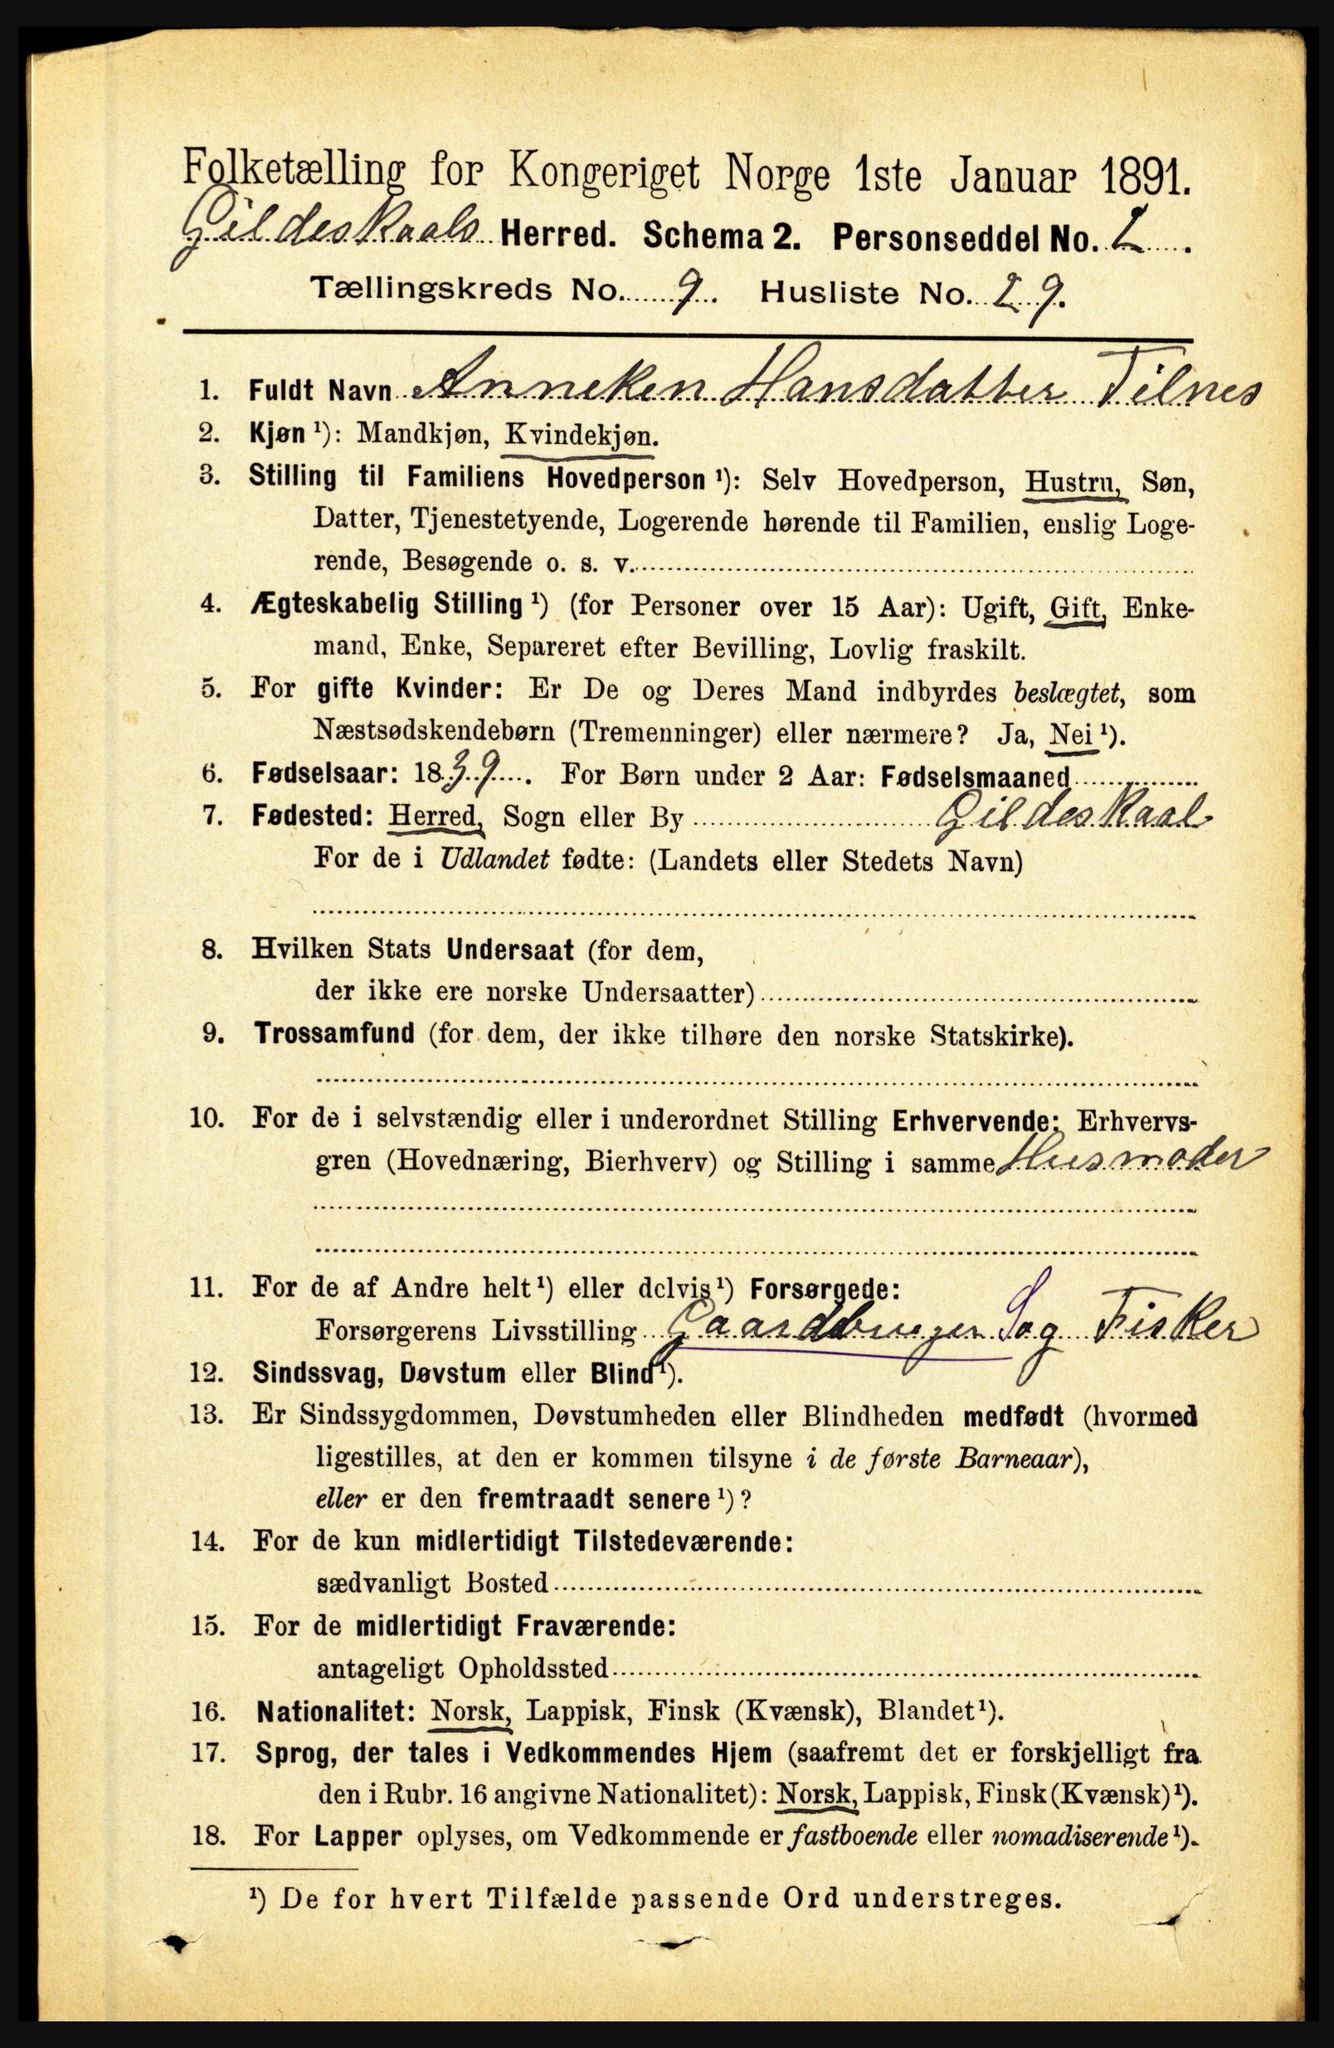 Folketælling for Kongeriget Norge 1ste Januar 1891.
Gildeskaals Herred. Schema 2. Personseddel No. 2.
Tællingskreds No. 9. Husliste No. 29.
1. Fuldt Navn Anneken Hansdatter Tilnes
2. Kjøn ¹): Mandkjøn, Kvindekjøn.
3. Stilling til Familiens Hovedperson ¹): Selv Hovedperson, Hustru, Søn,
Datter, Tjenestetyende, Logerende hørende til Familien, enslig Loge-
rende, Besøgende o. s. v.
4. Ægteskabelig Stilling ¹) (for Personer over 15 Aar): Ugift, Gift, Enke-
mand, Enke, Separeret efter Bevilling, Lovlig fraskilt.
5. For gifte Kvinder: Er De og Deres Mand indbyrdes beslægtet, som
Næstsødskendebørn (Tremenninger) eller nærmere? Ja, Nei ¹).
6. Fødselsaar: 1839. For Børn under 2 Aar: Fødselsmaaned
7. Fødested: Herred, Sogn eller By Gildeskaal
For de i Udlandet fødte: (Landets eller Stedets Navn)
8. Hvilken Stats Undersaat (for dem,
der ikke ere norske Undersaatter)
9. Trossamfund (for dem, der ikke tilhøre den norske Statskirke).
10. For de i selvstændig eller i underordnet Stilling Erhvervende: Erhvervs-
gren (Hovednæring, Bierhverv) og Stilling i samme Husmoder
11. For de af Andre helt ¹) eller delvis ¹) Forsørgede:
Forsørgerens Livsstilling Gaardbruger S og Fisker
12. Sindssvag, Døvstum eller Blind ¹).
13. Er Sindssygdommen, Døvstumheden eller Blindheden medfødt (hvormed
ligestilles, at den er kommen tilsyne i de første Barneaar),
eller er den fremtraadt senere ¹)?
14. For de kun midlertidigt Tilstedeværende:
sædvanligt Bosted
15. For de midlertidigt Fraværende:
antageligt Opholdssted
16. Nationalitet: Norsk, Lappisk, Finsk (Kvænsk), Blandet ¹).
17. Sprog, der tales i Vedkommendes Hjem (saafremt det er forskjelligt fra
den i Rubr. 16 angivne Nationalitet): Norsk, Lappisk, Finsk (Kvænsk) ¹).
18. For Lapper oplyses, om Vedkommende er fastboende eller nomadiserende ¹).
¹) De for hvert Tilfælde passende Ord understreges.